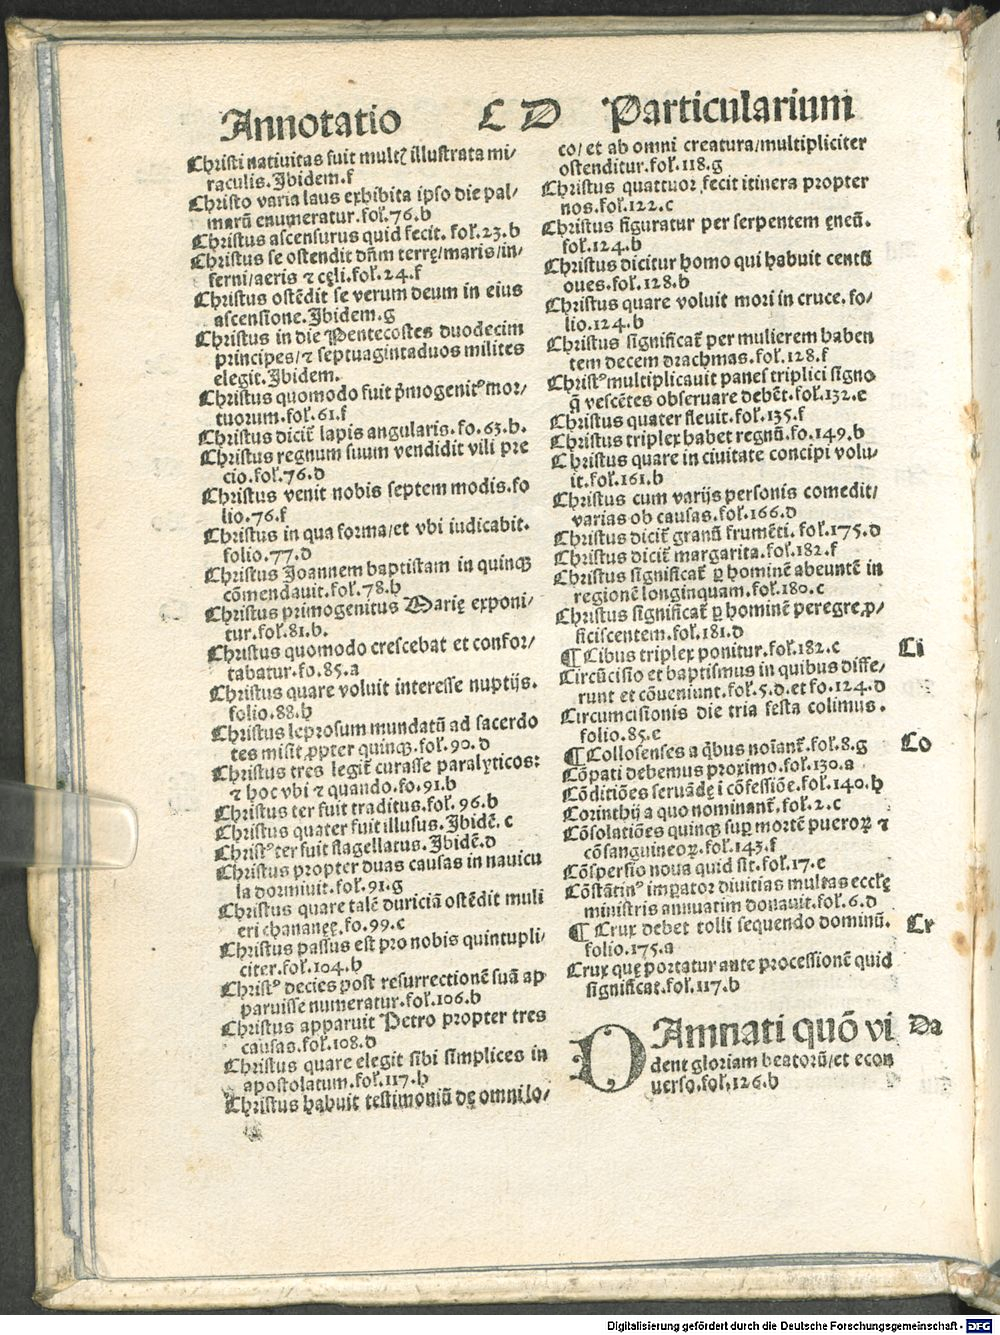 Annotatio C D Particularium
Christi nativitas fuit mult illustrata mi/
raculis. Ibidem.f
Christo varia laus exhibita ipso die pal/
marū enumeratur. fol. 76.b
Christus ascensurus quid fecit. fol. 23.b
Christus se ostendit dn̄m terrę/maris/in/
ferni/aeris ⁊ cęli. fol. 24.f
Christus ostēdit se verum deum in eius
ascensione. Ibidem.g
Christus in die Pentecostes duodecim
principes/⁊ septuagintaduos milites
elegit. Ibidem.
Christus quomodo fuit p̄mogenitꝰ mor/
tuorum. fol. 61.f
Christus dicit̄ lapis angularis. fo. 63.b.
Christus regnum suum vendidit vili pre
cio. fol. 76.d
Christus venit nobis septem modis. fo
lio. 76.f
Christus in qua forma/et vbi iudicabit.
folio. 77.d
Christus Joannem baptistam in quinqꝫ
cōmendauit. fol. 78.h
Christus primogenitus Marię exponi/
tur. fol. 81.b.
Christus quomodo crescebat et confor/
tabatur. fo. 85.a
Christus quare voluit interesse nuptijs.
folio. 88.h
Christus leprosum mundatū ad sacerdo
tes misit ꝓpter quinqꝫ. fol. 90.d
Christus tres legit̄ curasse paralyticos:
⁊ hoc vbi ⁊ quando. fo. 91.b
Christus ter fuit traditus. fol. 96.b
Christus quater fuit illusus. Ibidē. c
Christꝰ ter fuit flagellatus. Ibidē.d
Christus propter duas causas in nauicu
la dormiuit. fol. 91.g
Christus quare talē duriciā ostēdit muli
eri chananęę. fo. 99.c
Christus passus est pro nobis quintupli/
citer. fol. 104.h
Christꝰ decies post resurrectionē suā ap
paruisse numeratur. fol. 106.b
Christus apparuit Petro propter tres
causas. fol. 108.d
Christus quare elegit sibi simplices in
apostolatum. fol. 117.h
Christus habuit testimoniū de omni lo/
co/ et ab omni creatura/multipliciter
ostenditur. fol. 118.g
Christus quattuor fecit itinera propter
nos. fol. 122.c
Christus figuratur per serpentem ęneū.
fol. 124.b
Christus dicitur homo qui habuit centū
oues. fol. 128.b
Christus quare voluit mori in cruce. fo/
lio. 124.b
Christus significat̄ per mulierem haben
tem decem drachmas. fol. 128.f
Christꝰ multiplicauit panes triplici signo
q̄ vescētes obseruare debēt. fol. 132.e
Christus quater fleuit. fol. 135.f
Christus triplex habet regnū. fo. 149.b
Christus quare in ciuitate concipi volu/
it. fol. 161.b
Christus cum varijs personis comedit/
varias ob causas. fol. 166.d
Christus dicit̄ granū frumēti. fol. 175.d
Christus dicit̄ margarita. fol. 182.f
Christus significat̄ ꝑ hominē abeuntē in
regionē longinquam. fol. 180.c
Christus significat̄ ꝑ hominē peregre ꝓ/
ficiscentem. fol. 181.d
¶ Cibus triplex ponitur. fol. 182.c Ci
Circūcisio et baptismus in quibus diffe/
runt et cōueniunt. fol. 5.d. et fo. 124.d
Circumcisionis die tria festa colimus.
folio. 85.e
¶ Collosenses a q̄bus noīant̄. fol. 8.g Co
Cōpati debemus proximo. fol. 130.a
Cōditiōes seruādę ī cōfessiōe. fol. 140.h
Corinthij a quo nominant̄. fol. 2.c
Cōsolatiōes quinqꝫ suꝑ mortē pueroꝝ ⁊
cōsanguineoꝝ. fol. 143.f
Cōspersio noua quid sit. fol. 17.e
Cōstātinꝰ imꝑator diuitias multas ecclę
ministris annuatim donauit. fol. 6.d
¶ Crux debet tolli sequendo dominū. Cr
folio. 175.a
Crux quę portatur ante processionē quid
significat. fol. 117.b
DAmnati quō vi Da
dent gloriam beatorū/et econ
uerso. fol. 126.b
Digitalisierung gefördert durch die Deutsche Forschungsgemeinschaft - DFG